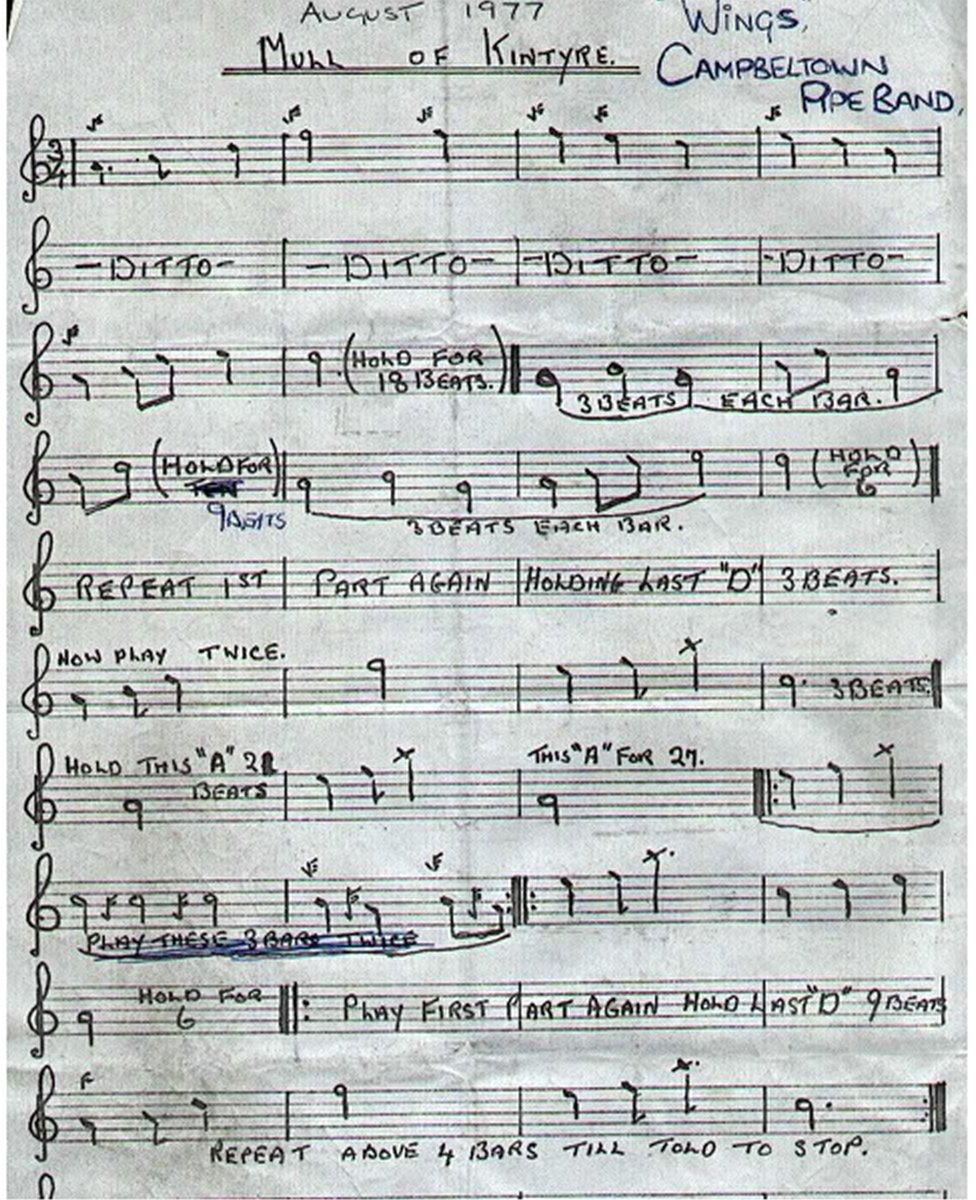 AUGUST 1977
MULL OF KINTYRE.
WINGS,
CAMPBELTOWN
PIPE BAND,
3
4
-DITTO- -DITTO- -DITTO- -DITTO-
(HOLD FOR
18 BEATS.)
3 BEATS EACH BAR.
(HOLD FOR)
9 BEATS
(HOLD
FOR
6)
3 BEATS EACH BAR.
REPEAT 1ST PART AGAIN HOLDING LAST "D" 3 BEATS.
NOW PLAY TWICE.
3 BEATS.
HOLD THIS "A" 21
BEATS
THIS "A" FOR 27.
PLAY THESE 3 BARS TWICE
HOLD FOR
6
PLAY FIRST PART AGAIN HOLD LAST "D" 9 BEATS
REPEAT ABOVE 4 BARS TILL TOLD TO STOP.